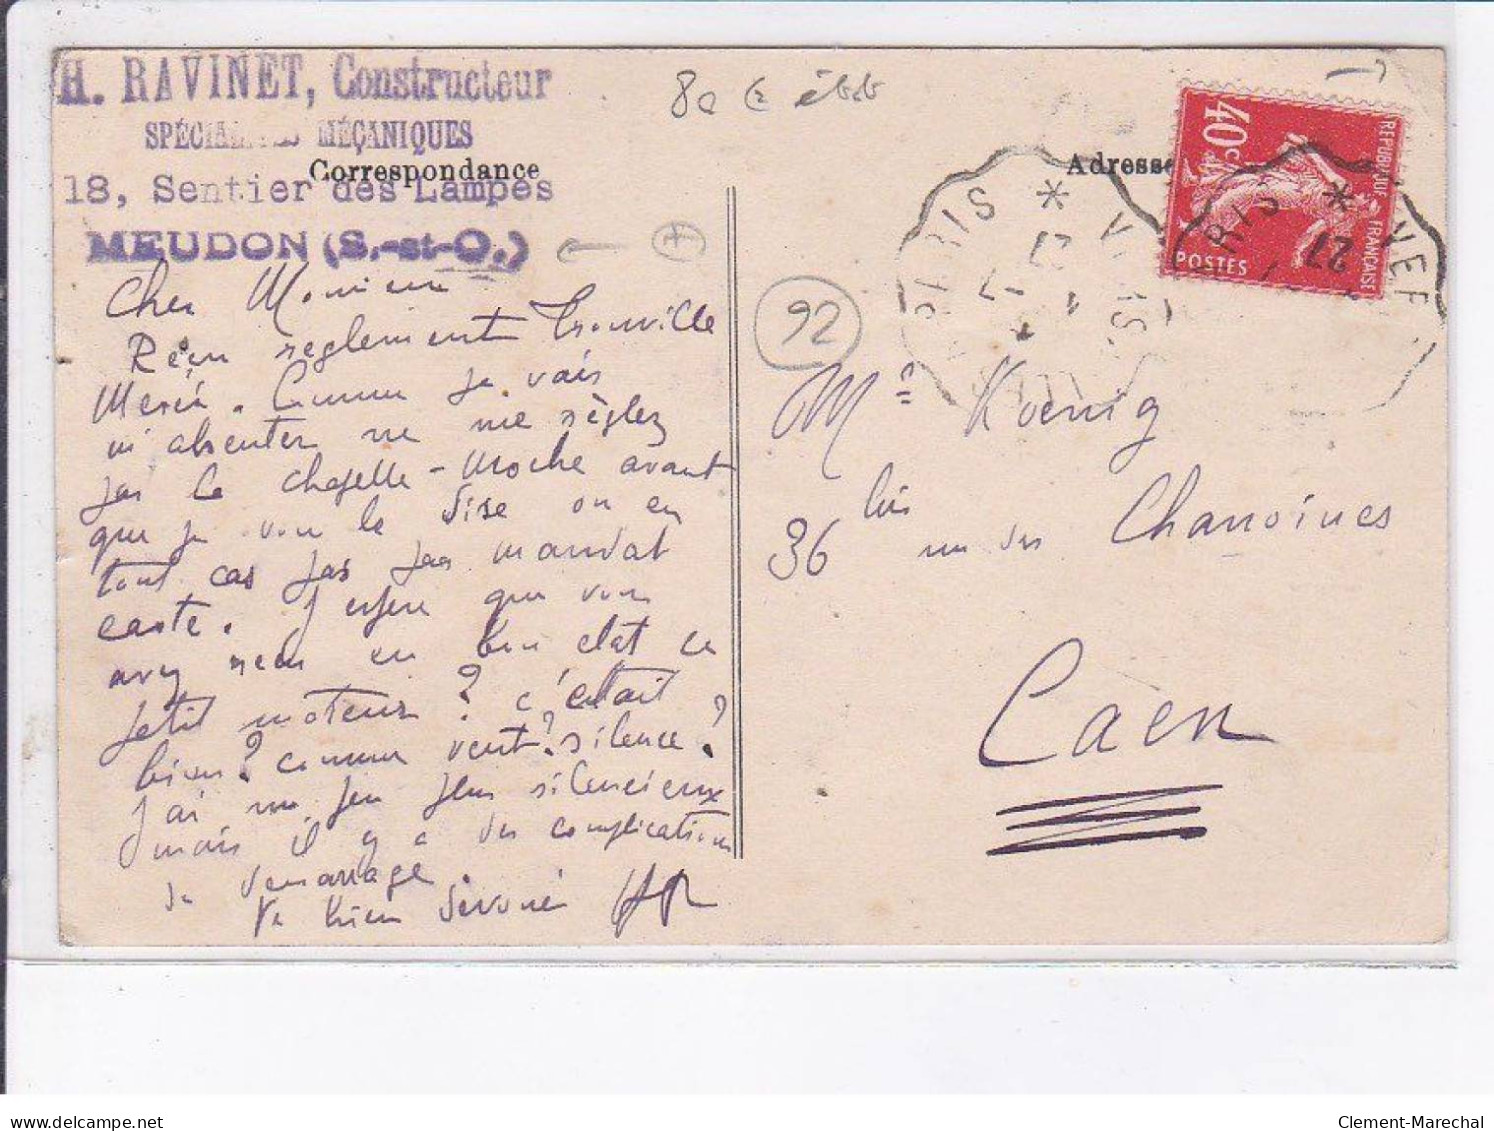 H. RAVINET, Constructeur
SPÉCIALITÉS MÉÇANIQUES
Correspondance
18, Sentier des Lampes
MEUDON (S.-et-O.)
Cher Monsieur
Reçu reglement Trouville
Merci. Comme je vais
m'absenter ne me règlez
pas la Chapelle-Moche avant
que je vous le dise ou en
tout cas pas par mandat
carte. J'espere que vous
avez recu en bon etat ce
petit moteur? c'était
bien? comme vent? silence?
J'ai un peu plus silencieux
mais il y a des complications
de demarrage.
Vr bien devoué HR
92
Adresse
PARIS * 
27
40c
REPUBLIQUE FRANÇAISE
POSTES
Mr Koenig
36 bis rue des Chanoines
Caen
delcampe.net
Clement-Marechal